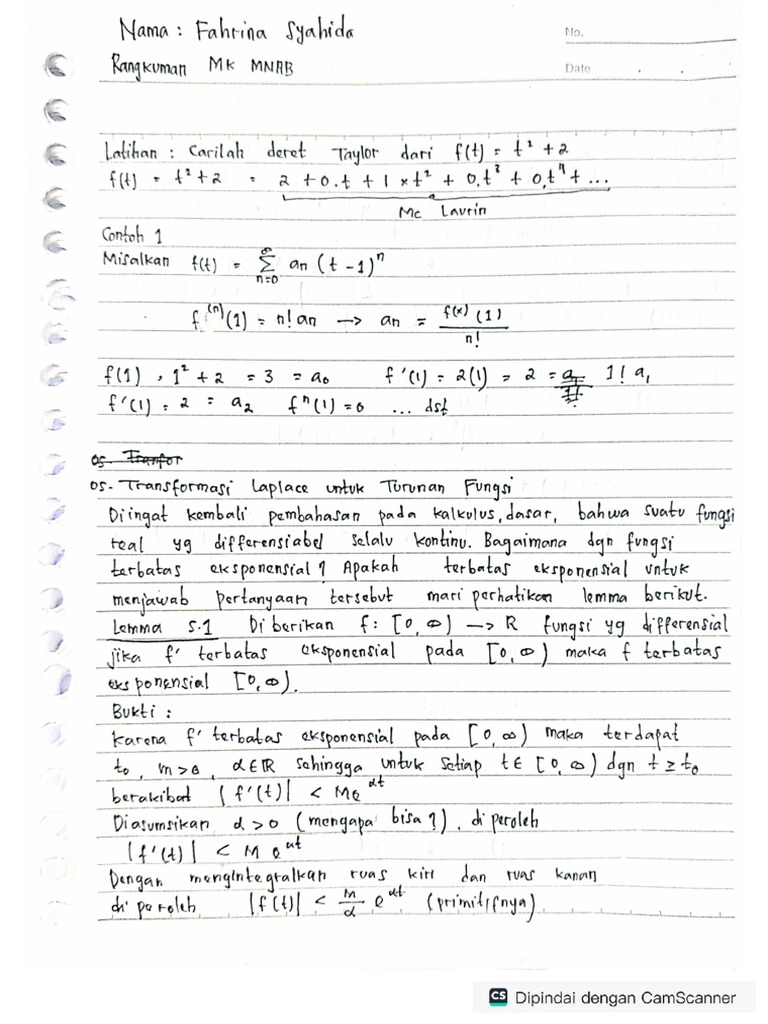 Nama : Fahrina Syahida
No.
Rangkuman MK MNAB
Date . . .
Latihan : Carilah deret Taylor dari f(t) = t² + 2
f(t) = t² + 2 = 2 + 0.t + 1 × t² + 0.t³ + 0.t⁴ + ...
Mc Laurin
Contoh 1
Misalkan f(t) = ∞ Σ n=0 an (t - 1)ⁿ
f⁽ⁿ⁾(1) = n! an → an = f(x) (1) / n!
f(1) = 1² + 2 = 3 = a₀ f'(1) = 2(1) = 2 = 1! a₁
f'(1) = 2 = a₂ fⁿ(1) = 0 ... dst
05. Tranfor
05. Transformasi Laplace untuk Turunan Fungsi
Diingat kembali pembahasan pada kalkulus, dasar, bahwa suatu fungsi
real yg differensiabel selalu kontinu. Bagaimana dgn fungsi
terbatas eksponensial ? Apakah terbatas eksponensial untuk
menjawab pertanyaan tersebut mari perhatikan lemma berikut.
Lemma 5.1 Diberikan f : [0, ∞) → R fungsi yg differensial
jika f' terbatas eksponensial pada [0, ∞) maka f terbatas
eksponensial [0, ∞).
Bukti :
Karena f' terbatas eksponensial pada [0, ∞) maka terdapat
t₀, m > 0, α ∈ ℝ sehingga untuk setiap t ∈ [0, ∞) dgn t ≥ t₀
berakibat |f'(t)| < Me^αt
Diasumsikan α > 0 (mengapa bisa ?), diperoleh
|f'(t)| < M e^αt
Dengan mengintegralkan ruas kiri dan ruas kanan
diperoleh |f(t)| < M/α e^αt (primitifnya)
CS Dipindai dengan CamScanner